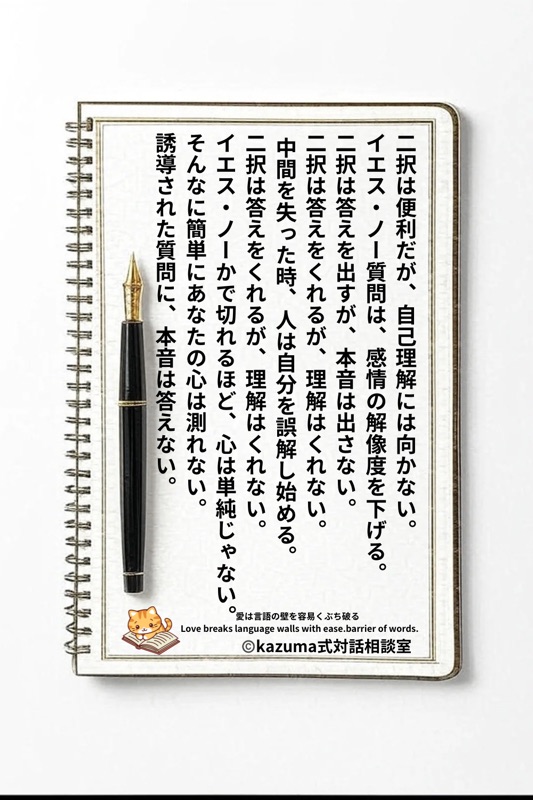 二択は便利だが、自己理解には向かない。
イエス・ノー質問は、感情の解像度を下げる。
二択は答えを出すが、本音は出さない。
二択は答えをくれるが、理解はくれない。
中間を失った時、人は自分を誤解し始める。
二択は答えをくれるが、理解はくれない。
イエス・ノーかで切れるほど、心は単純じゃない。
そんなに簡単にあなたの心は測れない。
誘導された質問に、本音は答えない。
愛は言語の壁を容易くぶち破る
Love breaks language walls with ease.barrier of words.
©kazuma式対話相談室